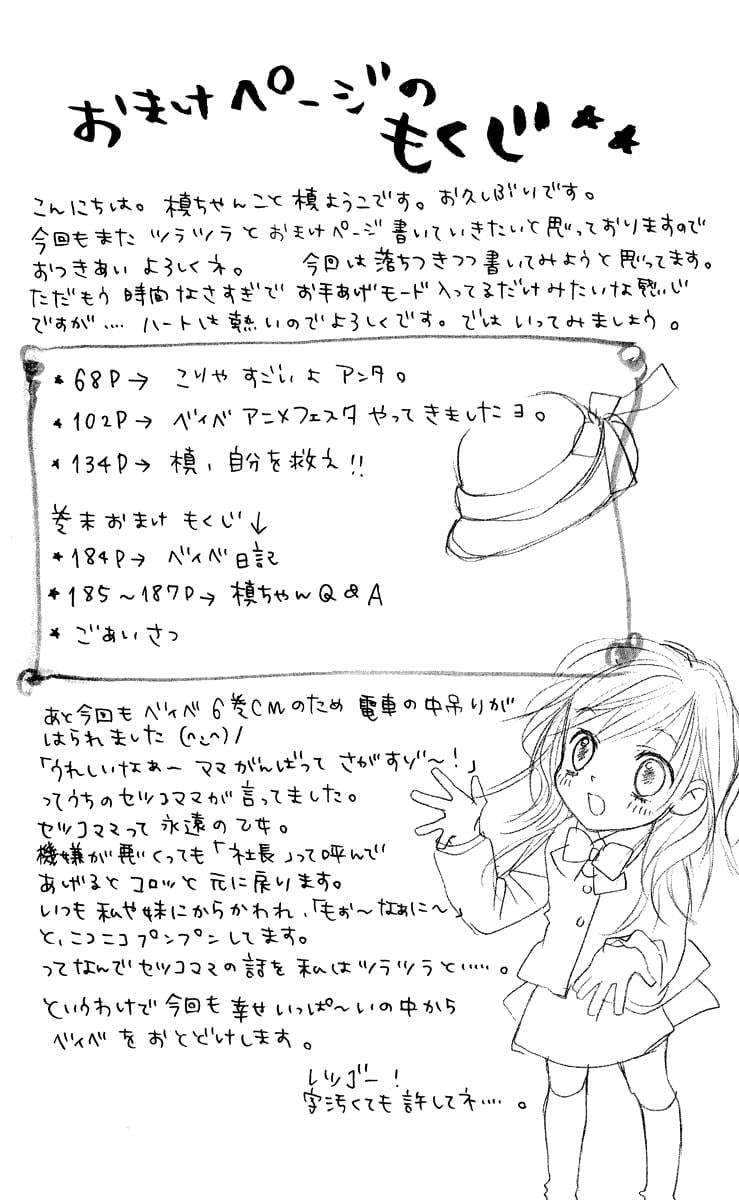 おまけページの
もくじ★★
こんにちは。槙ちゃんこと槙ようこです。お久しぶりです。
今回もまたツラツラとおまけページ書いていきたいと思っておりますので
おつきあいよろしくネ。 今回は落ちつきつつ書いてみようと思ってます。
ただもう時間なさすぎでお手あげモード入ってるだけみたいな感じ
ですが…. ハートは熱いのでよろしくです。ではいってみましょう。
★68P→ こりゃすごいよアンタ。
★102P→ ベイベアニメフェスタやってきましたヨ。
★134P→ 槙、自分を救え!!
巻末おまけもくじ↓
★184P→ ベイベ日記
★185〜187P→ 槙ちゃんQ&A
★ ごあいさつ
あと今回もベイベ6巻CMのため電車の中吊りが
はられました(^-^)/
「うれしいなぁーママがんばってさがすぞ〜!」
ってうちのセツコママが言ってました。
セツコママって永遠の乙女。
機嫌が悪くっても「社長」って呼んで
あげるとコロッと元に戻ります。
いつも私や妹にからかわれ、「もぉ〜なぁに〜」
と、ニコニコプンプンしてます。
ってなんでセツコママの話を私はツラツラと…..。
というわけで今回も幸せいっぱ〜いの中から
ベイベをおとどけします。
レッゴー!
字汚くても許してネ….。